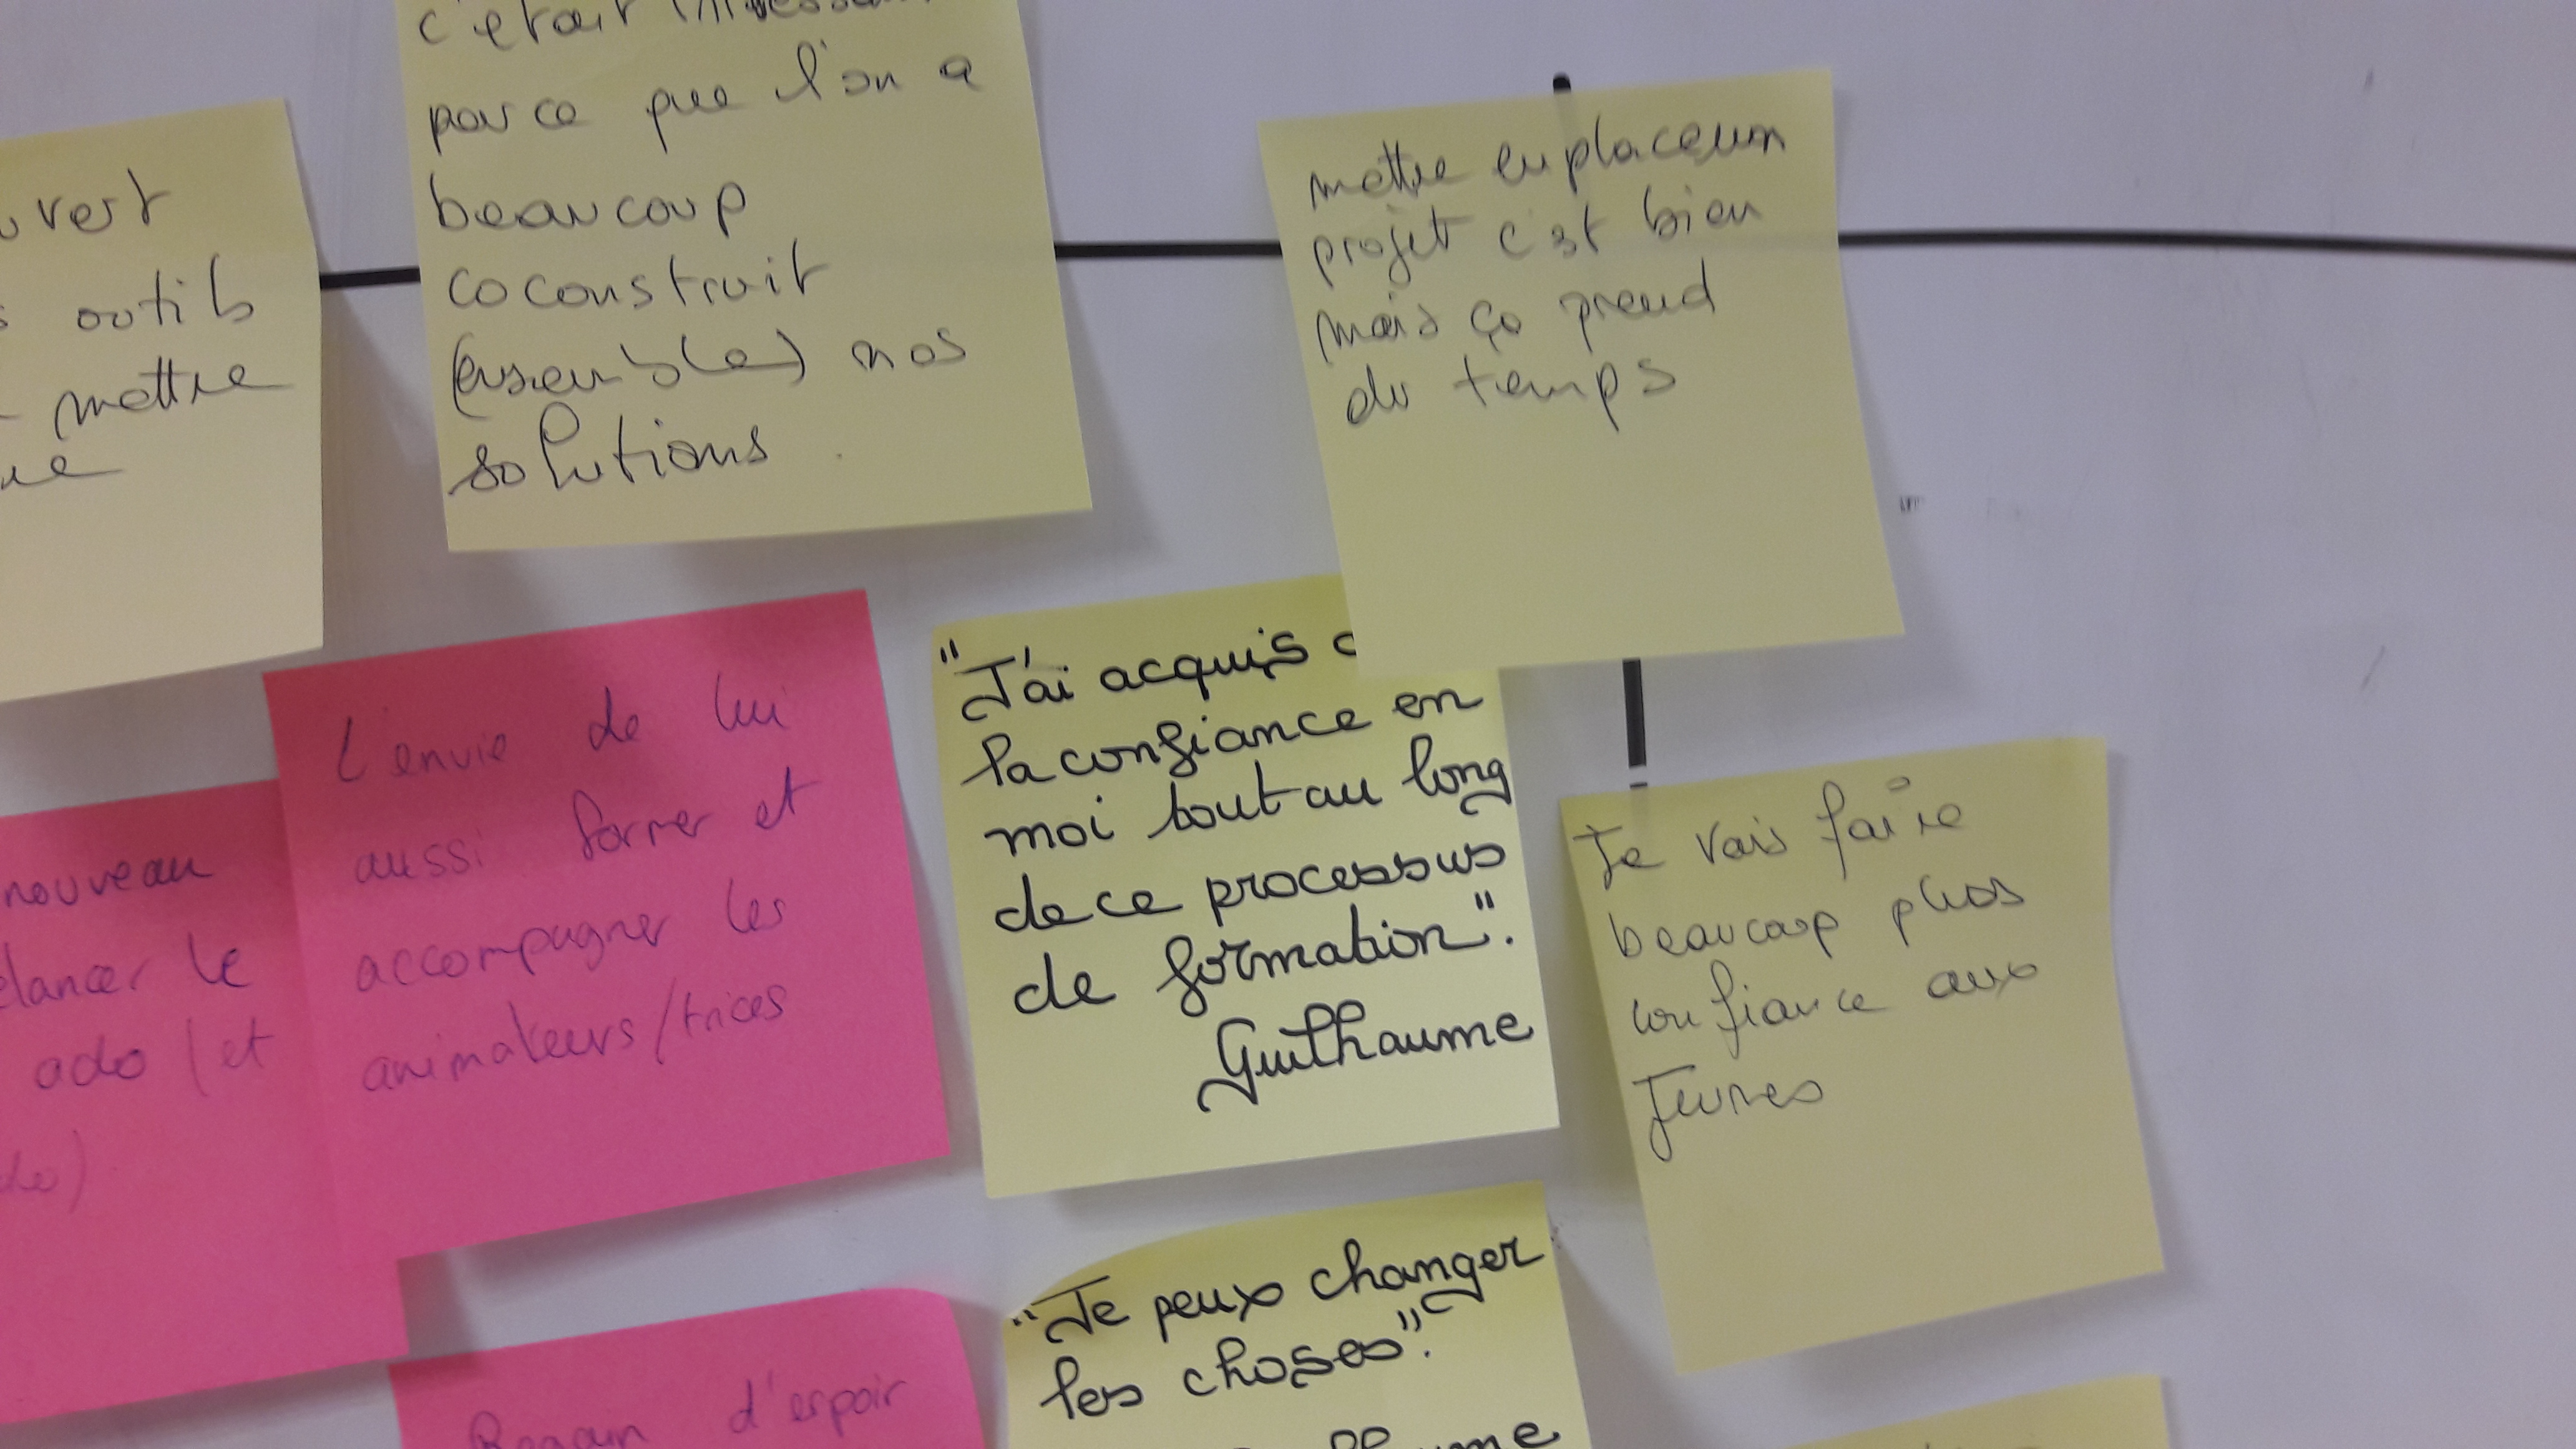 outils
mettre
c'était
parce que l'on a
beaucoup
coconstruit
(ensemble) nos
solutions.
mettre en place un
projet c'est bien
mais ça prend
du temps
nouveau
le
ado (et
L'envie de lui
aussi former et
accompagner les
animateurs/trices
"J'ai acquis
la confiance en
moi tout au long
de ce processus
de formation".
Guilhaume
Je vais faire
beaucoup plus
confiance aux
Jeunes
Regain d'espoir
"Je peux changer
les choses".